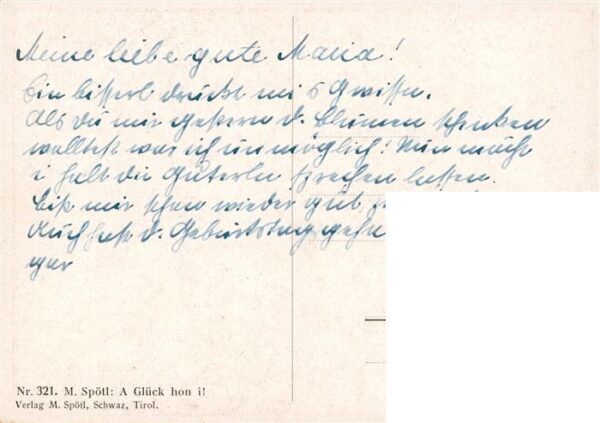 Meine liebe gute Maria!
Ein bisserl druckt mi s Gwissn.
Als du mir gestern d. Blumen schenken
wolltest war ich unmöglich! Nun möcht
i halt die Guterln sprechen lassen.
Bist mir schon wieder gut,
Auch hast d. Geburtstag
gar
Nr. 321. M. Spötl: A Glück hon i!
Verlag M. Spötl, Schwaz, Tirol.